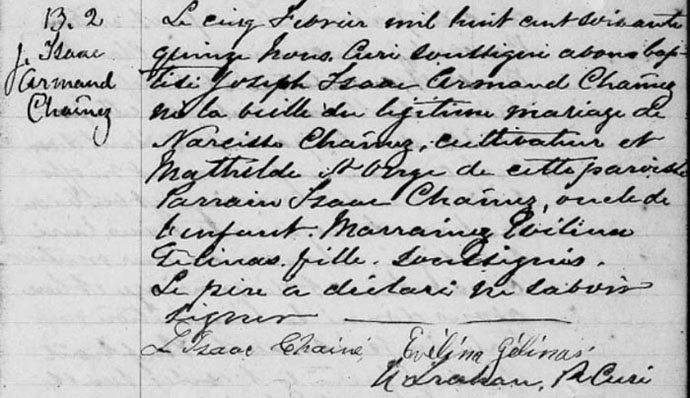 B. 2
J. Isaac
Armand
Chaînez
Le cinq Février mil huit cent soixante
quinze nous Curé soussigné avons bap-
tisé Joseph Isaac Armand Chaînez
né la veille du légitime mariage de
Narcisse Chaînez, cultivateur et
Mathilde St Onge de cette paroisse
Parrain Isaac Chaînez, oncle de
l'enfant. Marraine Evélina
Gélinas fille. soussignés.
Le père a déclaré ne savoir
signer
Isaac Chainé, Evélina Gélinas
N. Trahan, Ptre Curé